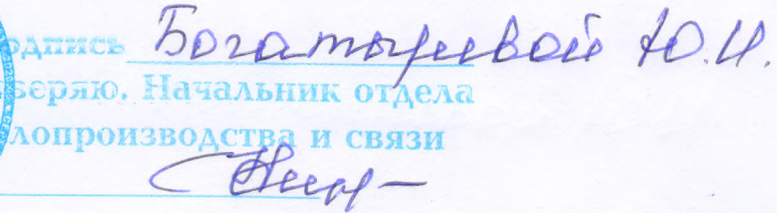 одпись Богатыревой Ю.И.
веряю. Начальник отдела
лопроизводства и связи